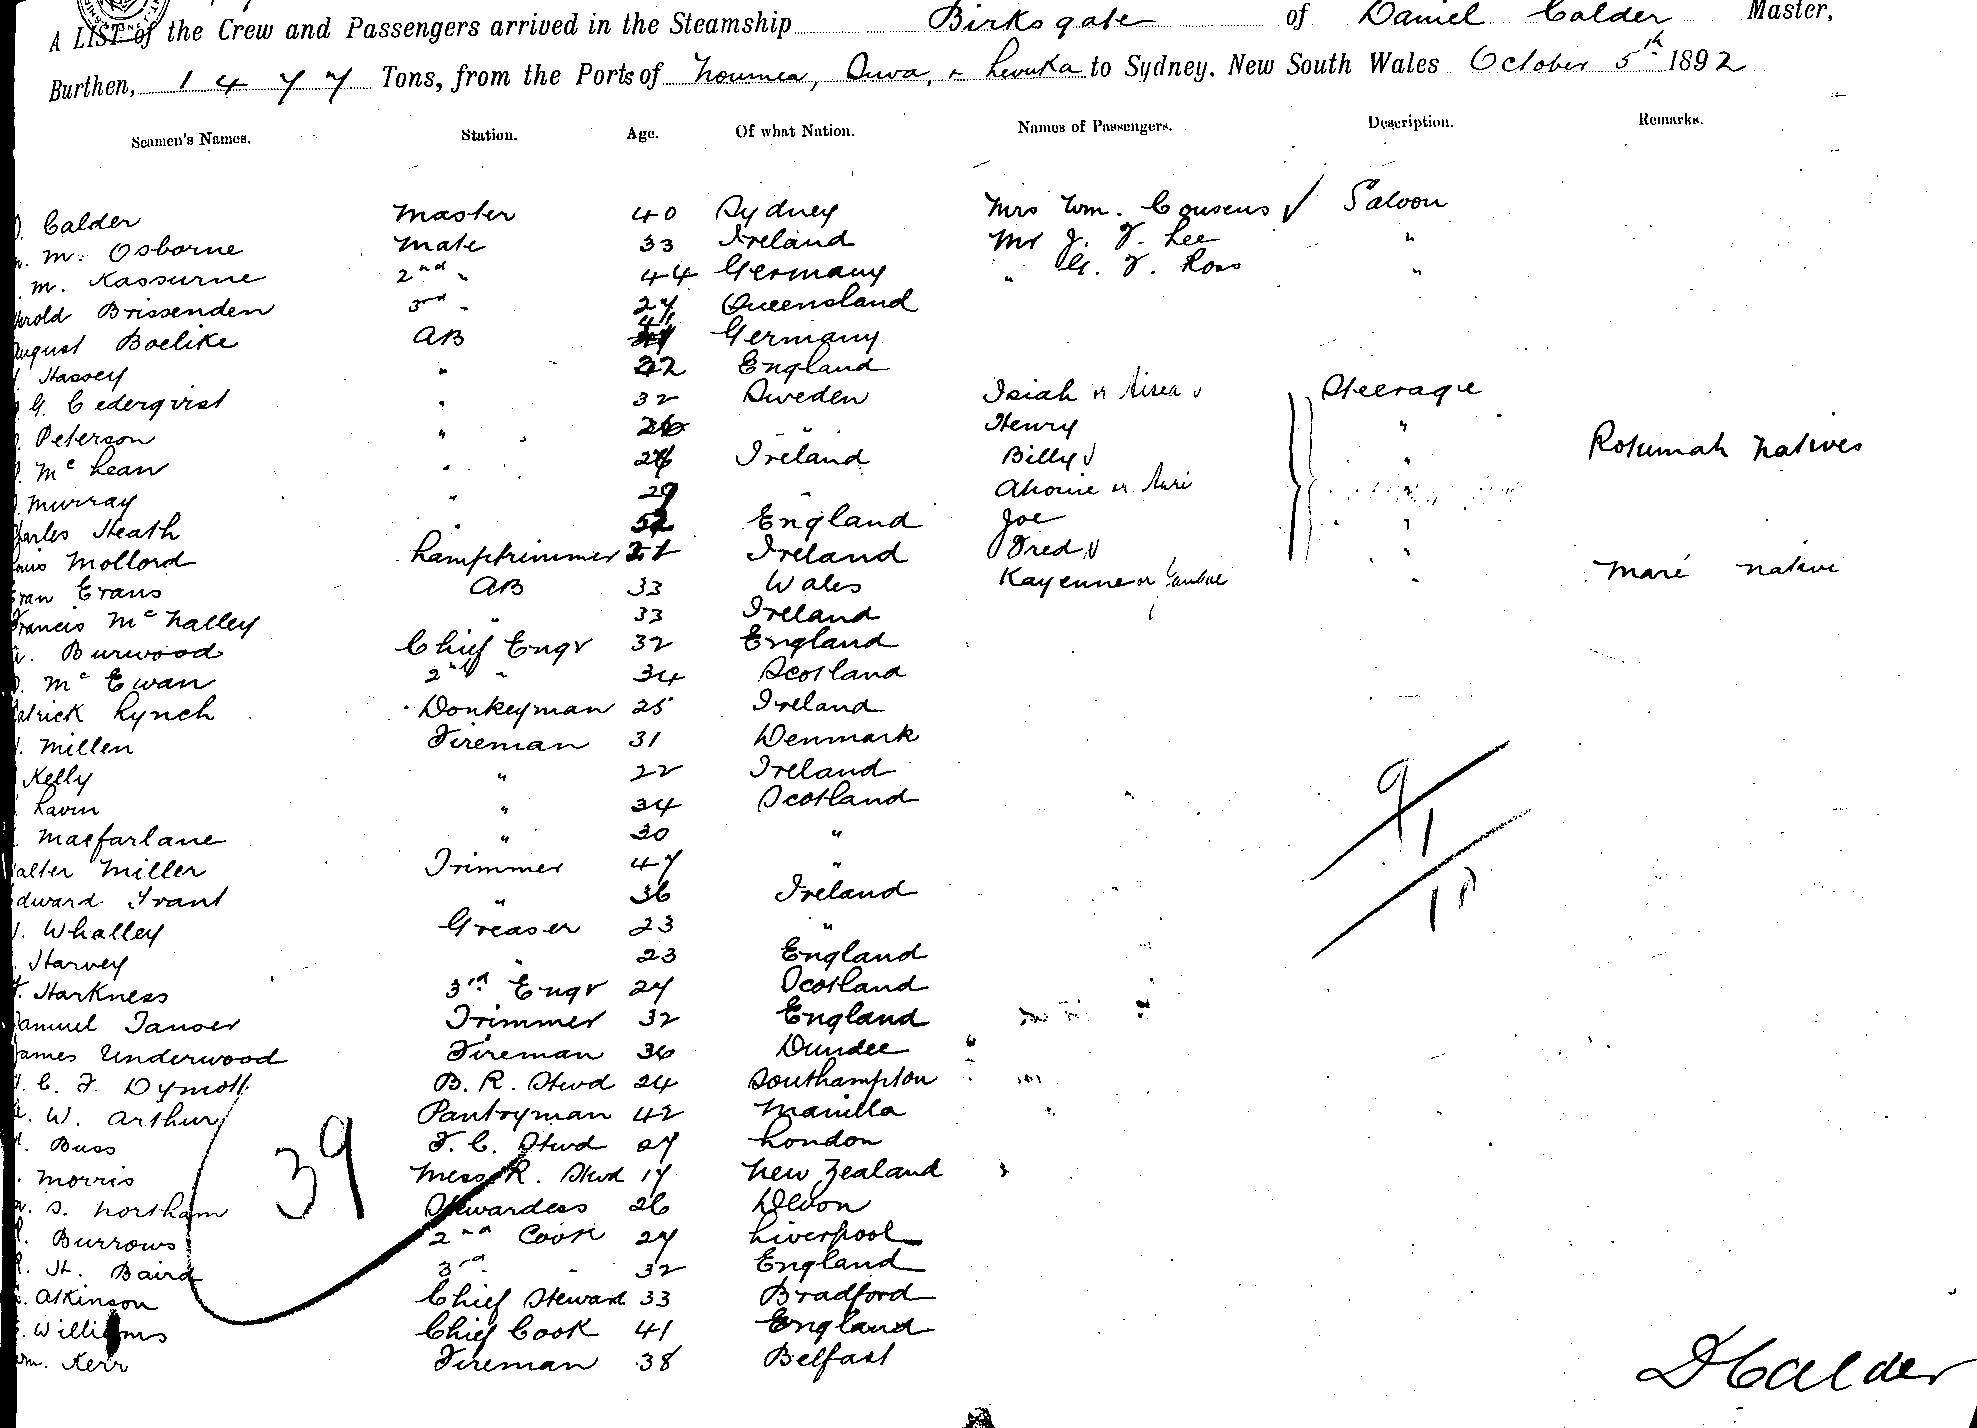 A LIST of the Crew and Passengers arrived in the Steamship Birksgate of Daniel Calder Master,
Burthen, 1477 Tons, from the Ports of Noumea, Suva, & Levuka to Sydney. New South Wales October 5th 1892
Seamen's Names. Station. Age. Of what Nation. Names of Passengers. Description. Remarks.
Calder Master 40 Sydney Mrs Wm. Cousens Saloon
M. Osborne Mate 33 Ireland Mr J. F. Lee "
M. Kassurne 2nd " 44 Germany " G. F. Ross "
Brissenden 3rd " 27 Queensland
August Boelike AB Germany
Hassey " 32 England
G. Cederqvist " 32 Sweden Isiah or Steerage
Peterson " 26 " Henry "
McLean " Ireland Billy " Rotumah Natives
Murray " 29 " Ahomie or "
Charles Heath " 52 England Joe "
Mollord Lamptrimmer Ireland Fred "
Evans AB 33 Wales Kayenne or " Maré native
Francis McNalley " 33 Ireland
Burwood Chief Engr 32 England
McEwan 2nd " 34 Scotland
Patrick Lynch Donkeyman 25 Ireland
Millen Fireman 31 Denmark
Kelly " 22 Ireland
Lavin " 34 Scotland
Macfarlane " 30 "
Walter Miller Trimmer 47 "
Edward Grant " 36 Ireland
Whalley Greaser 23 "
Harvey " 23 England
Harkness 3rd Engr 27 Scotland
Samuel Tanser Trimmer 32 England
James Underwood Fireman 36 Dundee
C. F. Dymott B. R. Stwd 24 Southampton
W. Arthur Pantryman 42 Manilla
Buss F. C. Stwd 27 London
Morris Mess R. Stwd 17 New Zealand
S. Northam Stewardess 26 Devon
Burrows 2nd Cook 27 Liverpool
H. Baird 3rd " 32 England
Atkinson Chief Steward 33 Bradford
Williams Chief Cook 41 England
Wm. Kerr Fireman 38 Belfast
9/1/10
39
D Calder